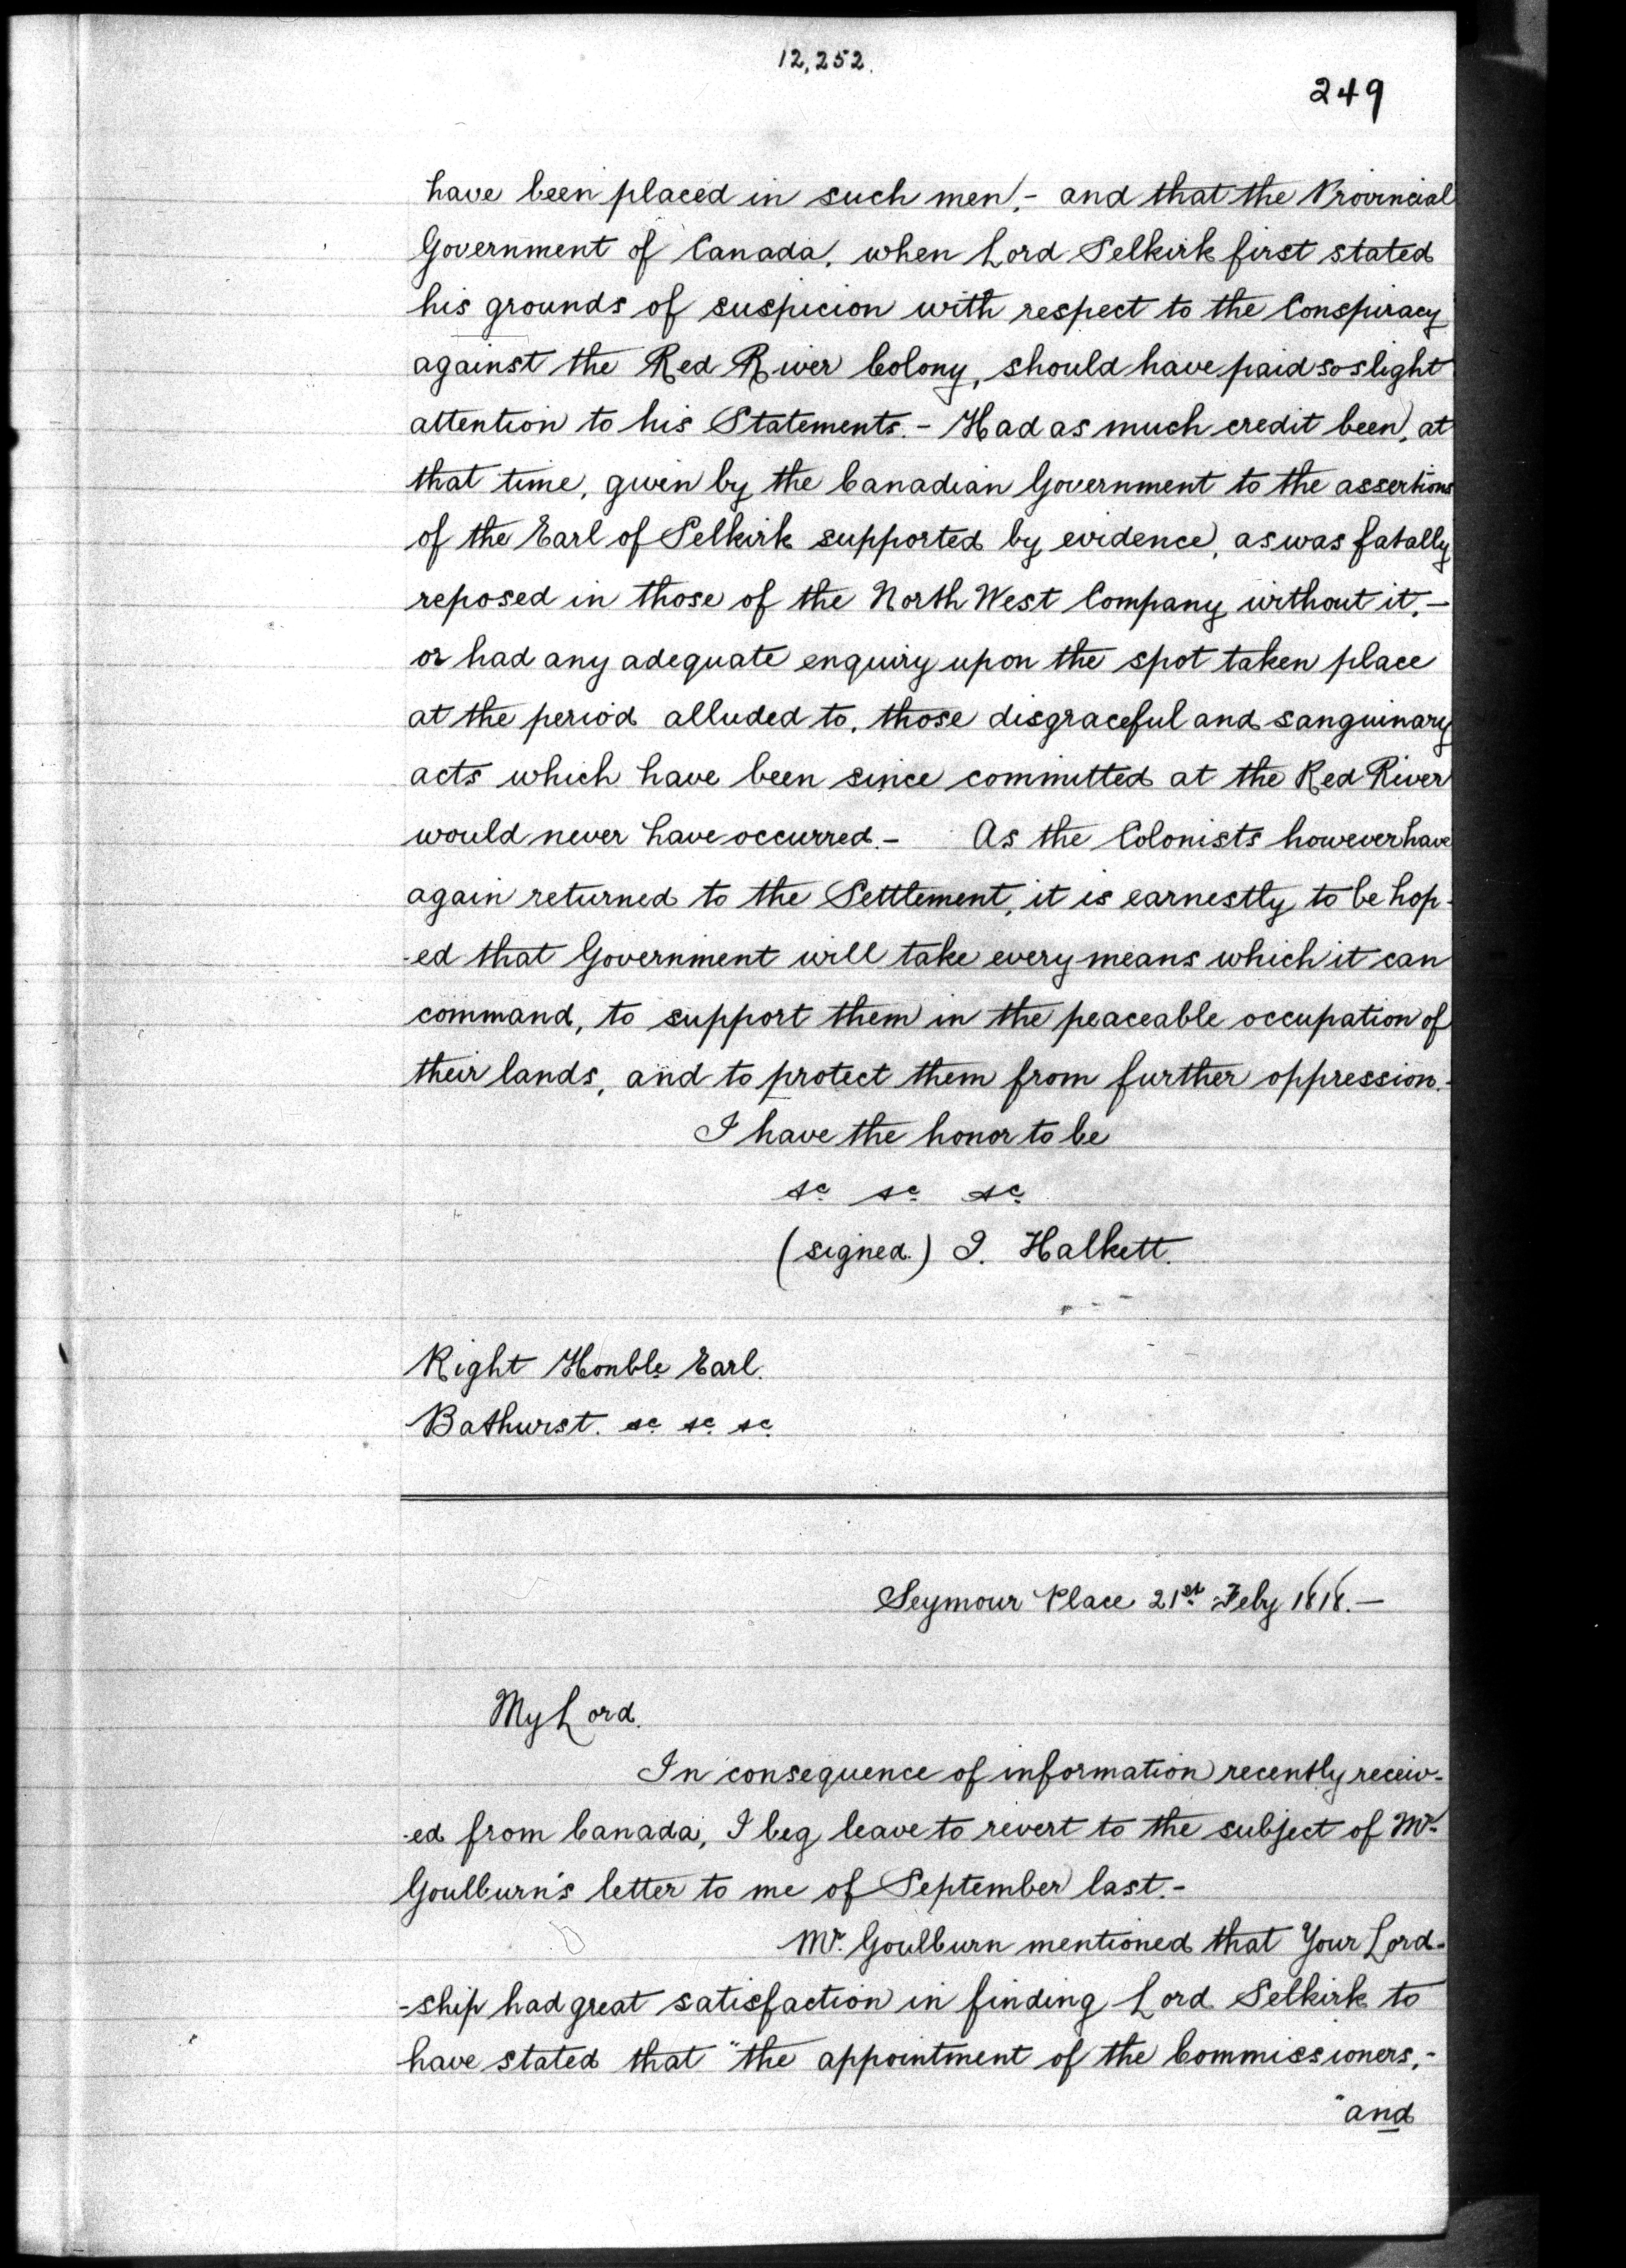 12,252.
249
have been placed in such men, - and that the Provincial
Government of Canada, when Lord Selkirk first stated
his grounds of suspicion with respect to the Conspiracy
against the Red River Colony, should have paid so slight
attention to his Statements. - Had as much credit been, at
that time, given by the Canadian Government to the assertions
of the Earl of Selkirk supported by evidence, as was fatally
reposed in those of the North West Company without it, -
or had any adequate enquiry upon the spot taken place
at the period alluded to, those disgraceful and sanguinary
acts which have been since committed at the Red River
would never have occurred. - As the Colonists however have
again returned to the Settlement, it is earnestly to be hop-
-ed that Government will take every means which it can
command, to support them in the peaceable occupation of
their lands, and to protect them from further oppression. -
I have the honor to be
&c &c &c
(signed.) I. Halkett.
Right Honble Earl.
Bathurst. &c &c &c
Seymour Place 21st Feby 1818. -
My Lord.
In consequence of information recently receiv-
-ed from Canada, I beg leave to revert to the subject of Mr.
Goulburn's letter to me of September last. -
Mr. Goulburn mentioned that Your Lord-
-ship had great satisfaction in finding Lord Selkirk to
have stated that "the appointment of the Commissioners, -
"and